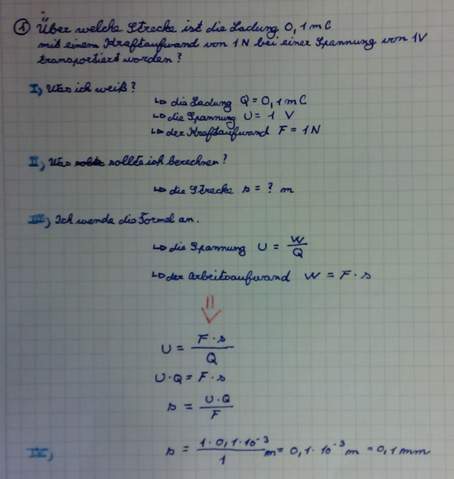 ① Über welche Strecke ist die Ladung 0,1 mC
mit einem Kraftaufwand von 1N bei einer Spannung von 1V
transportiert worden?
I) Was ich weiß?
↳ die Ladung Q = 0,1 mC
↳ die Spannung U = 1 V
↳ der Kraftaufwand F = 1N
II) Was sollte ich berechnen?
↳ die Strecke s = ? m
III) Ich wende die Formel an.
↳ die Spannung U = W/Q
↳ der Arbeitsaufwand W = F · s
⇓
U = F · s / Q
U · Q = F · s
s = U · Q / F
IV) s = 1 · 0,1 · 10⁻³ / 1 m = 0,1 · 10⁻³ m = 0,1 mm